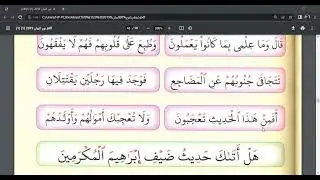 قَالَ وَمَا عِلْمِى بِمَا كَانُوا۟ يَعْمَلُونَ
وَطُبِعَ عَلَىٰ قُلُوبِهِمْ فَهُمْ لَا يَفْقَهُونَ
تَتَجَافَىٰ جُنُوبُهُمْ عَنِ ٱلْمَضَاجِعِ
فَوَجَدَ فِيهَا رَجُلَيْنِ يَقْتَتِلَانِ
أَفَمِنْ هَٰذَا ٱلْحَدِيثِ تَعْجَبُونَ
وَلَا تُعْجِبْكَ أَمْوَٰلُهُمْ وَأَوْلَٰدُهُمْ
هَلْ أَتَىٰكَ حَدِيثُ ضَيْفِ إِبْرَٰهِيمَ ٱلْمُكْرَمِينَ